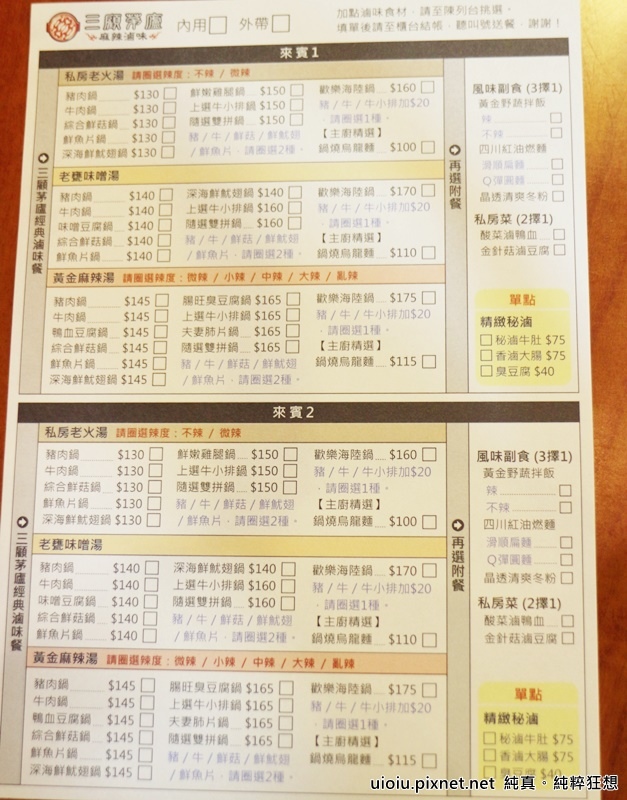 三顧茅廬
麻辣滷味
內用 外帶
加點滷味食材，請至陳列台挑選。
填單後請至櫃台結帳，聽叫號送餐，謝謝！
來賓1
三顧茅廬經典滷味餐
私房老火湯 請圈選辣度：不辣 / 微辣
豬肉鍋 $130
牛肉鍋 $130
綜合鮮菇鍋 $130
鮮魚片鍋 $130
深海鮮魷翅鍋 $130
鮮嫩雞腿鍋 $150
上選牛小排鍋 $150
隨選雙拼鍋 $150
豬 / 牛 / 鮮菇 / 鮮魷翅
/ 鮮魚片，請圈選2種。
歡樂海陸鍋 $160
豬 / 牛 / 牛小排加$20
，請圈選1種。
【主廚精選】
鍋燒烏龍麵 $100
老甕味噌湯
豬肉鍋 $140
牛肉鍋 $140
味噌豆腐鍋 $140
綜合鮮菇鍋 $140
鮮魚片鍋 $140
深海鮮魷翅鍋 $140
上選牛小排鍋 $160
隨選雙拼鍋 $160
豬 / 牛 / 鮮菇 / 鮮魷翅
/ 鮮魚片，請圈選2種。
歡樂海陸鍋 $170
豬 / 牛 / 牛小排加$20
，請圈選1種。
【主廚精選】
鍋燒烏龍麵 $110
黃金麻辣湯 請圈選辣度：微辣 / 小辣 / 中辣 / 大辣 / 亂辣
豬肉鍋 $145
牛肉鍋 $145
鴨血豆腐鍋 $145
綜合鮮菇鍋 $145
鮮魚片鍋 $145
深海鮮魷翅鍋 $145
腸旺臭豆腐鍋 $165
上選牛小排鍋 $165
夫妻肺片鍋 $165
隨選雙拼鍋 $165
豬 / 牛 / 鮮菇 / 鮮魷翅
/ 鮮魚片，請圈選2種。
歡樂海陸鍋 $175
豬 / 牛 / 牛小排加$20
，請圈選1種。
【主廚精選】
鍋燒烏龍麵 $115
再選附餐
風味副食 (3擇1)
黃金野蔬拌飯
辣
不辣
四川紅油燃麵
滑順扁麵
Q彈圓麵
晶透清爽冬粉
私房菜 (2擇1)
酸菜滷鴨血
金針菇滷豆腐
單點
精緻秘滷
秘滷牛肚 $75
香滷大腸 $75
臭豆腐 $40
來賓2
三顧茅廬經典滷味餐
私房老火湯 請圈選辣度：不辣 / 微辣
豬肉鍋 $130
牛肉鍋 $130
綜合鮮菇鍋 $130
鮮魚片鍋 $130
深海鮮魷翅鍋 $130
鮮嫩雞腿鍋 $150
上選牛小排鍋 $150
隨選雙拼鍋 $150
豬 / 牛 / 鮮菇 / 鮮魷翅
/ 鮮魚片，請圈選2種。
歡樂海陸鍋 $160
豬 / 牛 / 牛小排加$20
，請圈選1種。
【主廚精選】
鍋燒烏龍麵 $100
老甕味噌湯
豬肉鍋 $140
牛肉鍋 $140
味噌豆腐鍋 $140
綜合鮮菇鍋 $140
鮮魚片鍋 $140
深海鮮魷翅鍋 $140
上選牛小排鍋 $160
隨選雙拼鍋 $160
豬 / 牛 / 鮮菇 / 鮮魷翅
/ 鮮魚片，請圈選2種。
歡樂海陸鍋 $170
豬 / 牛 / 牛小排加$20
，請圈選1種。
【主廚精選】
鍋燒烏龍麵 $110
黃金麻辣湯 請圈選辣度：微辣 / 小辣 / 中辣 / 大辣 / 亂辣
豬肉鍋 $145
牛肉鍋 $145
鴨血豆腐鍋 $145
綜合鮮菇鍋 $145
鮮魚片鍋 $145
深海鮮魷翅鍋 $145
腸旺臭豆腐鍋 $165
上選牛小排鍋 $165
夫妻肺片鍋 $165
隨選雙拼鍋 $165
豬 / 牛 / 鮮菇 / 鮮魷翅
/ 鮮魚片，請圈選2種。
歡樂海陸鍋 $175
豬 / 牛 / 牛小排加$20
，請圈選1種。
【主廚精選】
鍋燒烏龍麵 $115
再選附餐
風味副食 (3擇1)
黃金野蔬拌飯
辣
不辣
四川紅油燃麵
滑順扁麵
Q彈圓麵
晶透清爽冬粉
私房菜 (2擇1)
酸菜滷鴨血
金針菇滷豆腐
單點
精緻秘滷
秘滷牛肚 $75
香滷大腸 $75
臭豆腐 $40
uioiu.pixnet.net 純真。純粹狂想